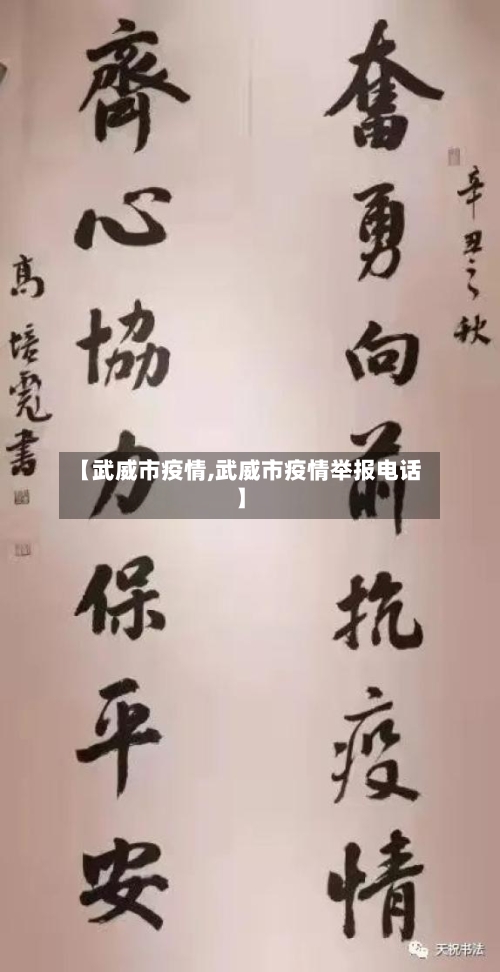 辛丑之秋
奮勇向前抗疫情
齊心協力保平安
高培霓書
【武威市疫情,武威市疫情举报电话
】
天祝书法